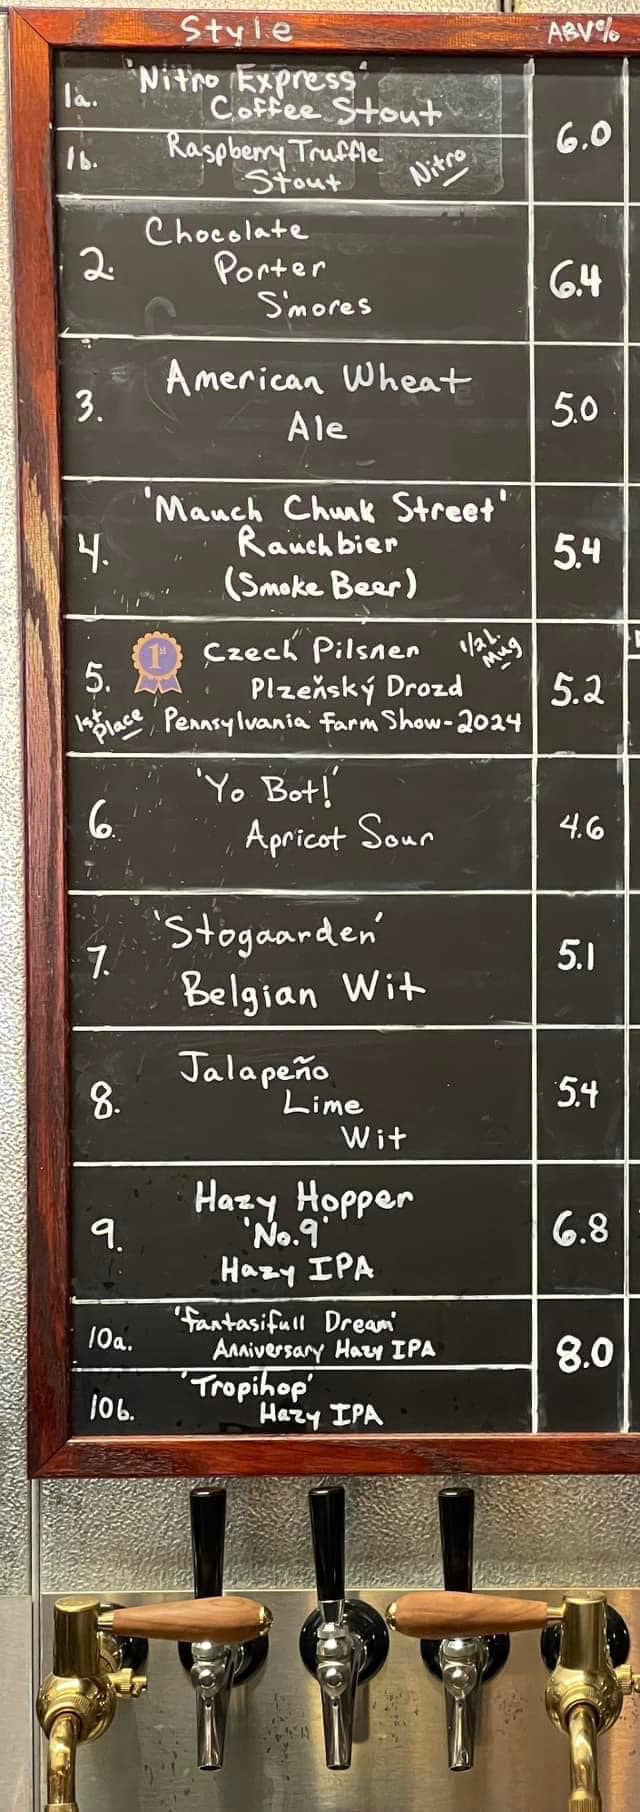 Style ABV%
1a. 'Nitro Express'
Coffee Stout
6.0
1b. Raspberry Truffle
Stout Nitro
2. Chocolate
Porter
S'mores
6.4
3. American Wheat
Ale
5.0
4. 'Mauch Chunk Street'
Rauchbier
(Smoke Beer)
5.4
5. 1st Czech Pilsner 1/2 L. Mug
Plzeňský Drozd
1st Place, Pennsylvania Farm Show-2024
5.2
6. 'Yo Bot!'
Apricot Sour
4.6
7. 'Stogaarden'
Belgian Wit
5.1
8. Jalapeño
Lime
Wit
5.4
9. Hazy Hopper
'No.9'
Hazy IPA
6.8
10a. 'Fantasifull Dream'
Anniversary Hazy IPA
8.0
10b. 'Tropihop'
Hazy IPA